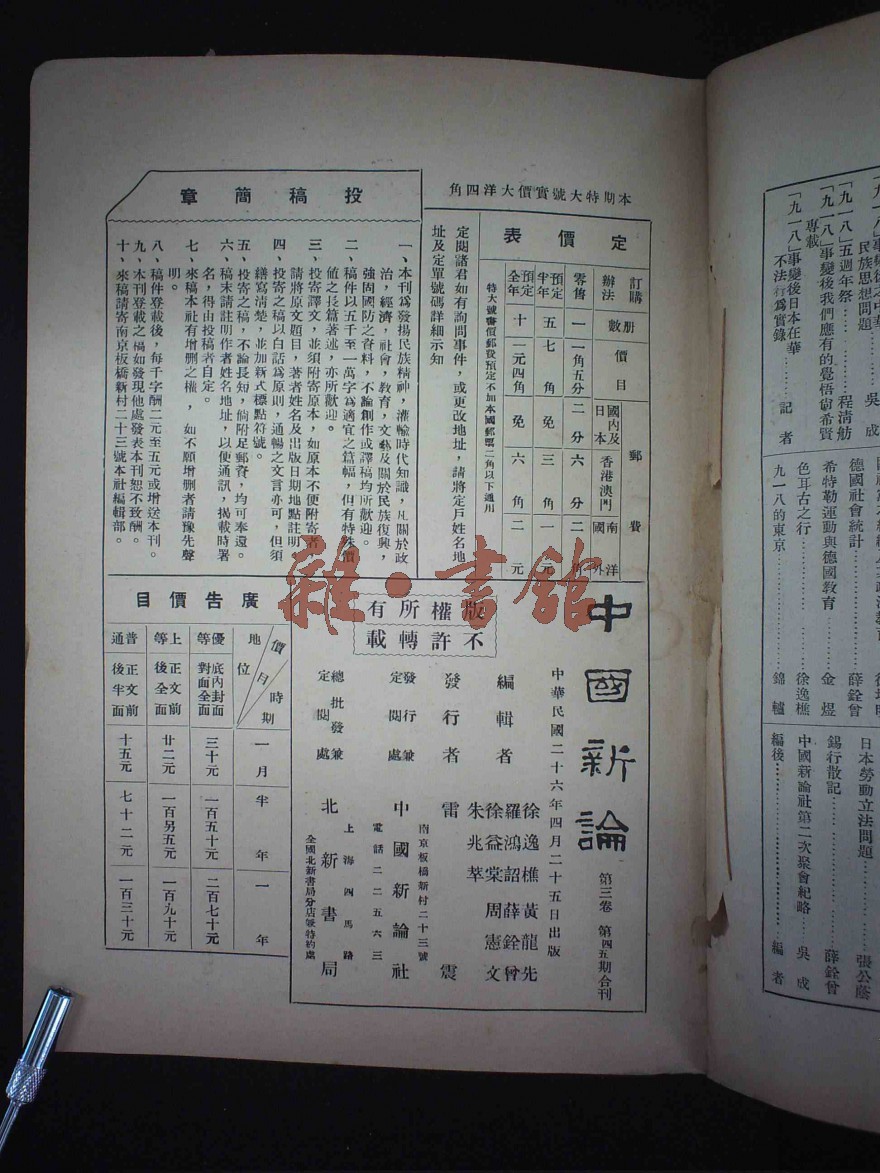 本期特大號實價大洋四角
定價表
訂購辦法
冊數
價目
郵費
國內及日本
香港澳門
南洋
國外
零售
一
一角五分
二分
六分
二角
預定半年
五
七角
免
三角
一元
預定全年
十
一元四角
免
六角
二元
特大號書價郵費預定不加本國郵票二角以下通用
定閱諸君如有詢問事件，或更改地址，請將定戶姓名地
址及定單號碼詳細示知
投稿簡章
一、本刊爲發揚民族精神，灌輸時代知識，凡關於政
治，經濟，社會，教育，文藝及關於民族復興，
強固國防之資料，不論創作或譯稿均所歡迎。
二、稿件以五千至一萬字爲適宜之篇幅，但有特殊價
值之長篇著述，亦所歡迎。
三、投寄譯文，並須附寄原本，如原本不便附寄者
請將原文題目，著者姓名及出版日期地點註明。
四、投寄之稿以白話爲原則，通暢之文言亦可，但須
繕寫清楚，並加新式標點符號。
五、投寄之稿，不論長短，倘附足郵資，均可奉還。
六、稿末請註明作者姓名地址，以便通訊，揭載時署
名，得由投稿者自定。
七、來稿本社有增刪之權，如不願增刪者請豫先聲
明。
八、稿件登載後，每千字酬二元至五元或增送本刊。
九、本刊登載之稿如發現他處發表本刊恕不致酬。
十、來稿請寄南京板橋新村二十三號本社編輯部。
中國新論
第三卷 第四五期合刊
中華民國二十六年四月二十五日出版
編輯者
徐逸樵 黃龍先
羅鴻詔 薛銓曾
徐益棠 周憲文
朱兆萃
發行者
雷震
南京板橋新村二十三號
發行兼定閱處
中國新論社
電話二二五六三
上海四馬路
總批發兼定閱處
北新書局
全國北新書局分店兼特約處
版權所有
不許轉載
廣告價目
價目
時期
地位
一月
半年
一年
優等
底內封面對面全面
三十元
一百五十元
二百七十元
上等
正文前後全面
廿二元
一百另五元
一百九十元
普通
正文前後半面
十五元
七十二元
一百三十元
雜·書館
「九一八」事變後之中華
民族思想問題……吳成
「九一八」五週年祭……程清舫
「九一八」事變後我們應有的覺悟 尙希賢
專載
「九一八」事變後日本在華
不法行爲實錄……記者
德國社會統計……薛銓曾
希特勒運動與德國教育……金煜
色耳古之行……徐逸樵
九一八的東京……錦轤
日本勞動立法問題……張公蔭
錫行散記……薛銓曾
中國新論社第二次聚會紀略……吳成
編後……編者